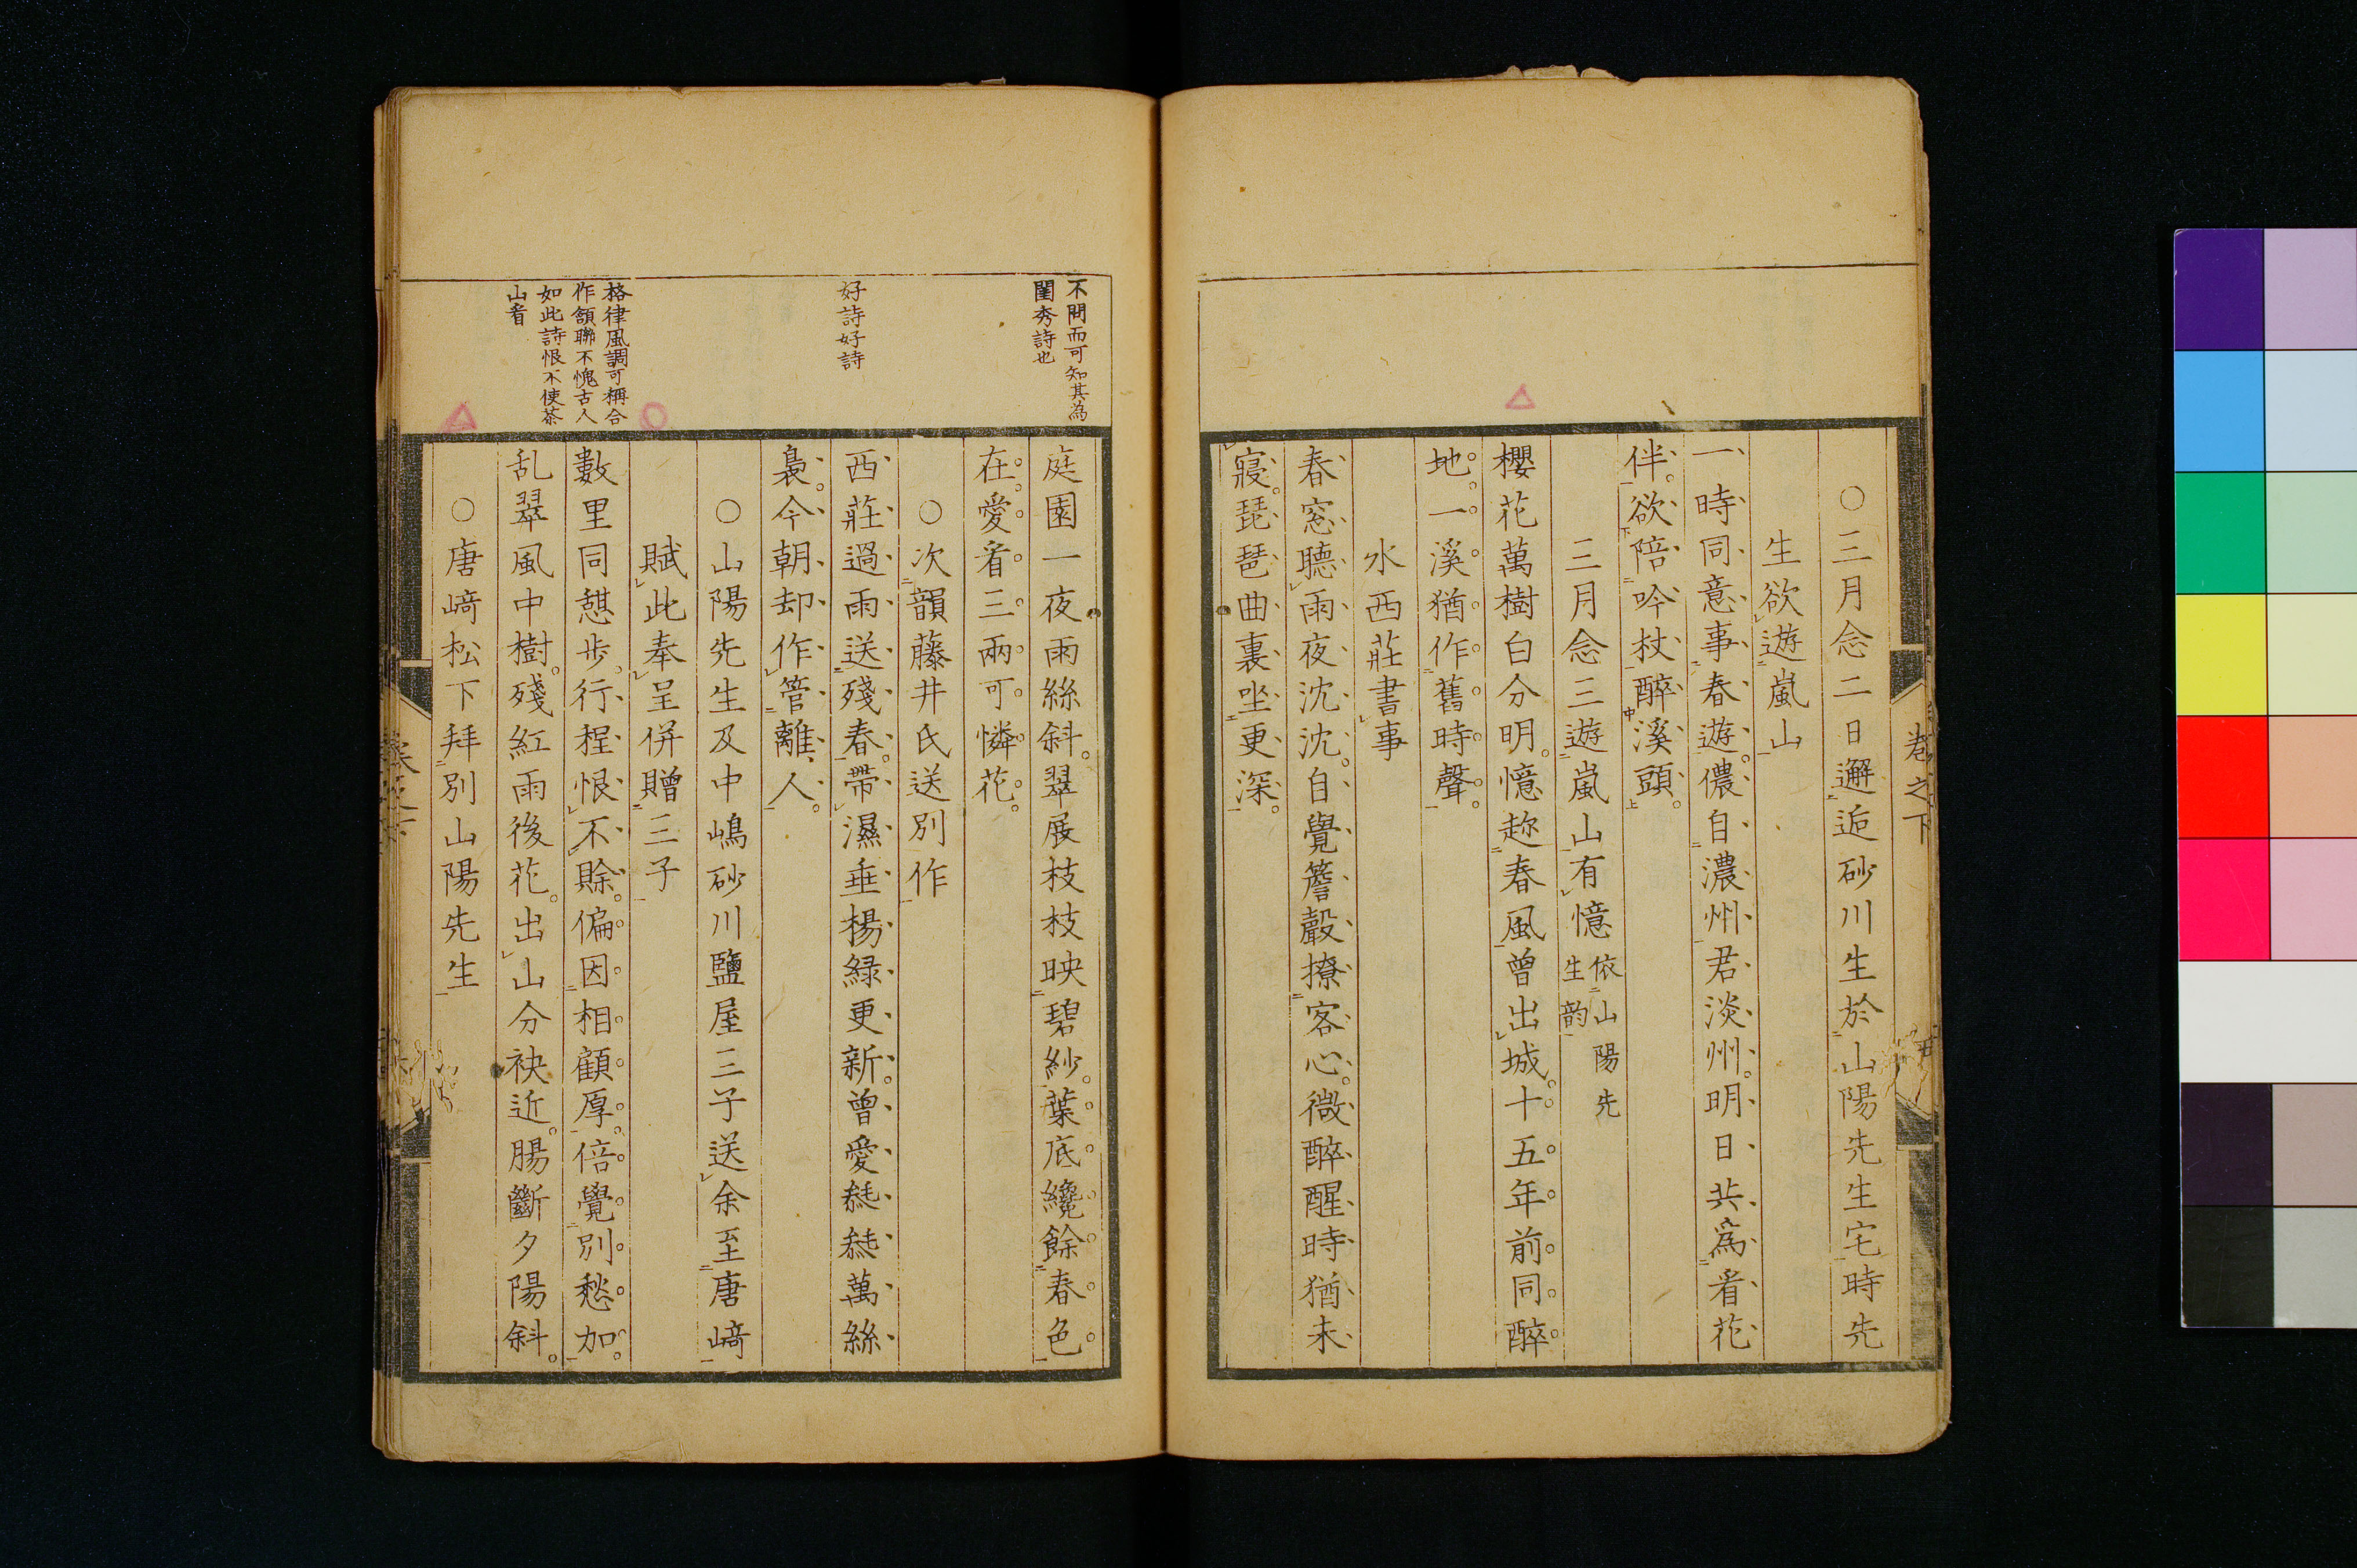 ○三月念二日邂逅砂川生於山陽先生宅時先
生欲遊嵐山
一時同意事春遊。儂自濃州君淡州。明日共爲看花
伴。欲陪吟杖醉溪頭。
三月念三遊嵐山有憶依山陽先
生韵
櫻花萬樹白分明。憶趂春風曾出城。十五年前同醉
地。一溪猶作舊時聲。
水西莊書事
春窓聽雨夜沈沈。自覺簷聲撩客心。微醉醒時猶未
寢。琵琶曲裏坐更深。
卷之下
不問而可知其為
閨秀詩也
庭園一夜雨絲斜。翠展枝枝映碧紗。葉底纔餘春色
在。愛看三兩可憐花。
○次韻藤井氏送別作
好詩好詩
西莊過雨送殘春。帶濕垂楊緑更新。曾愛毿毿萬絲
裊。今朝却作管離人。
○山陽先生及中嶋砂川鹽屋三子送余至唐﨑
賦此奉呈併贈三子
格律風調可稱合
作頷聯不愧古人
如此詩恨不使茶
山看
數里同憇歩。行程恨不賖。偏因相顧厚。倍覺別愁加。
乱翠風中樹。殘紅雨後花。出山分袂近。腸斷夕陽斜。
○唐﨑松下拜別山陽先生